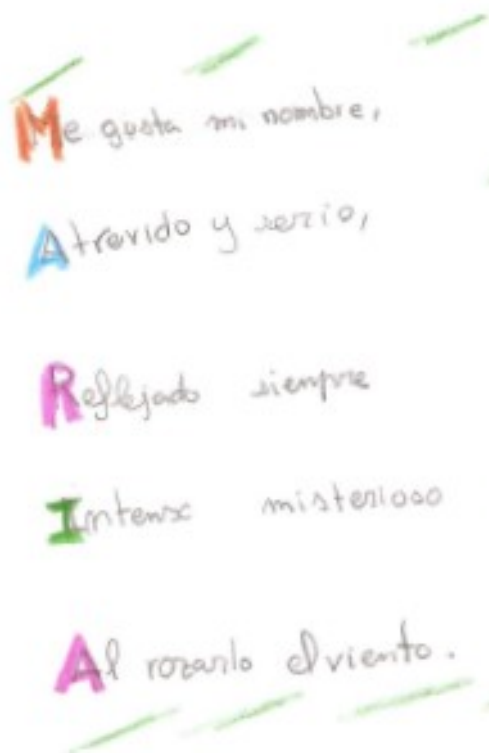 Me gusta mi nombre,
Atrevido y serio,
Reflejado siempre
Intenso misterioso
Al rozarlo el viento.